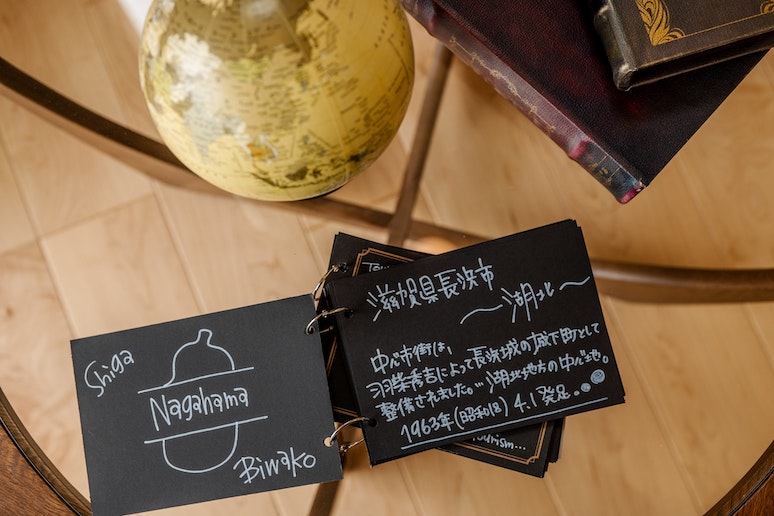 Shiga
Nagahama
Biwako
滋賀県長浜市
〜湖北〜
中心市街は、
羽柴秀吉によって長浜城の城下町として
整備されました。…湖北地方の中心地。
1963年(昭和18) 4.1 発足…
Tourism...